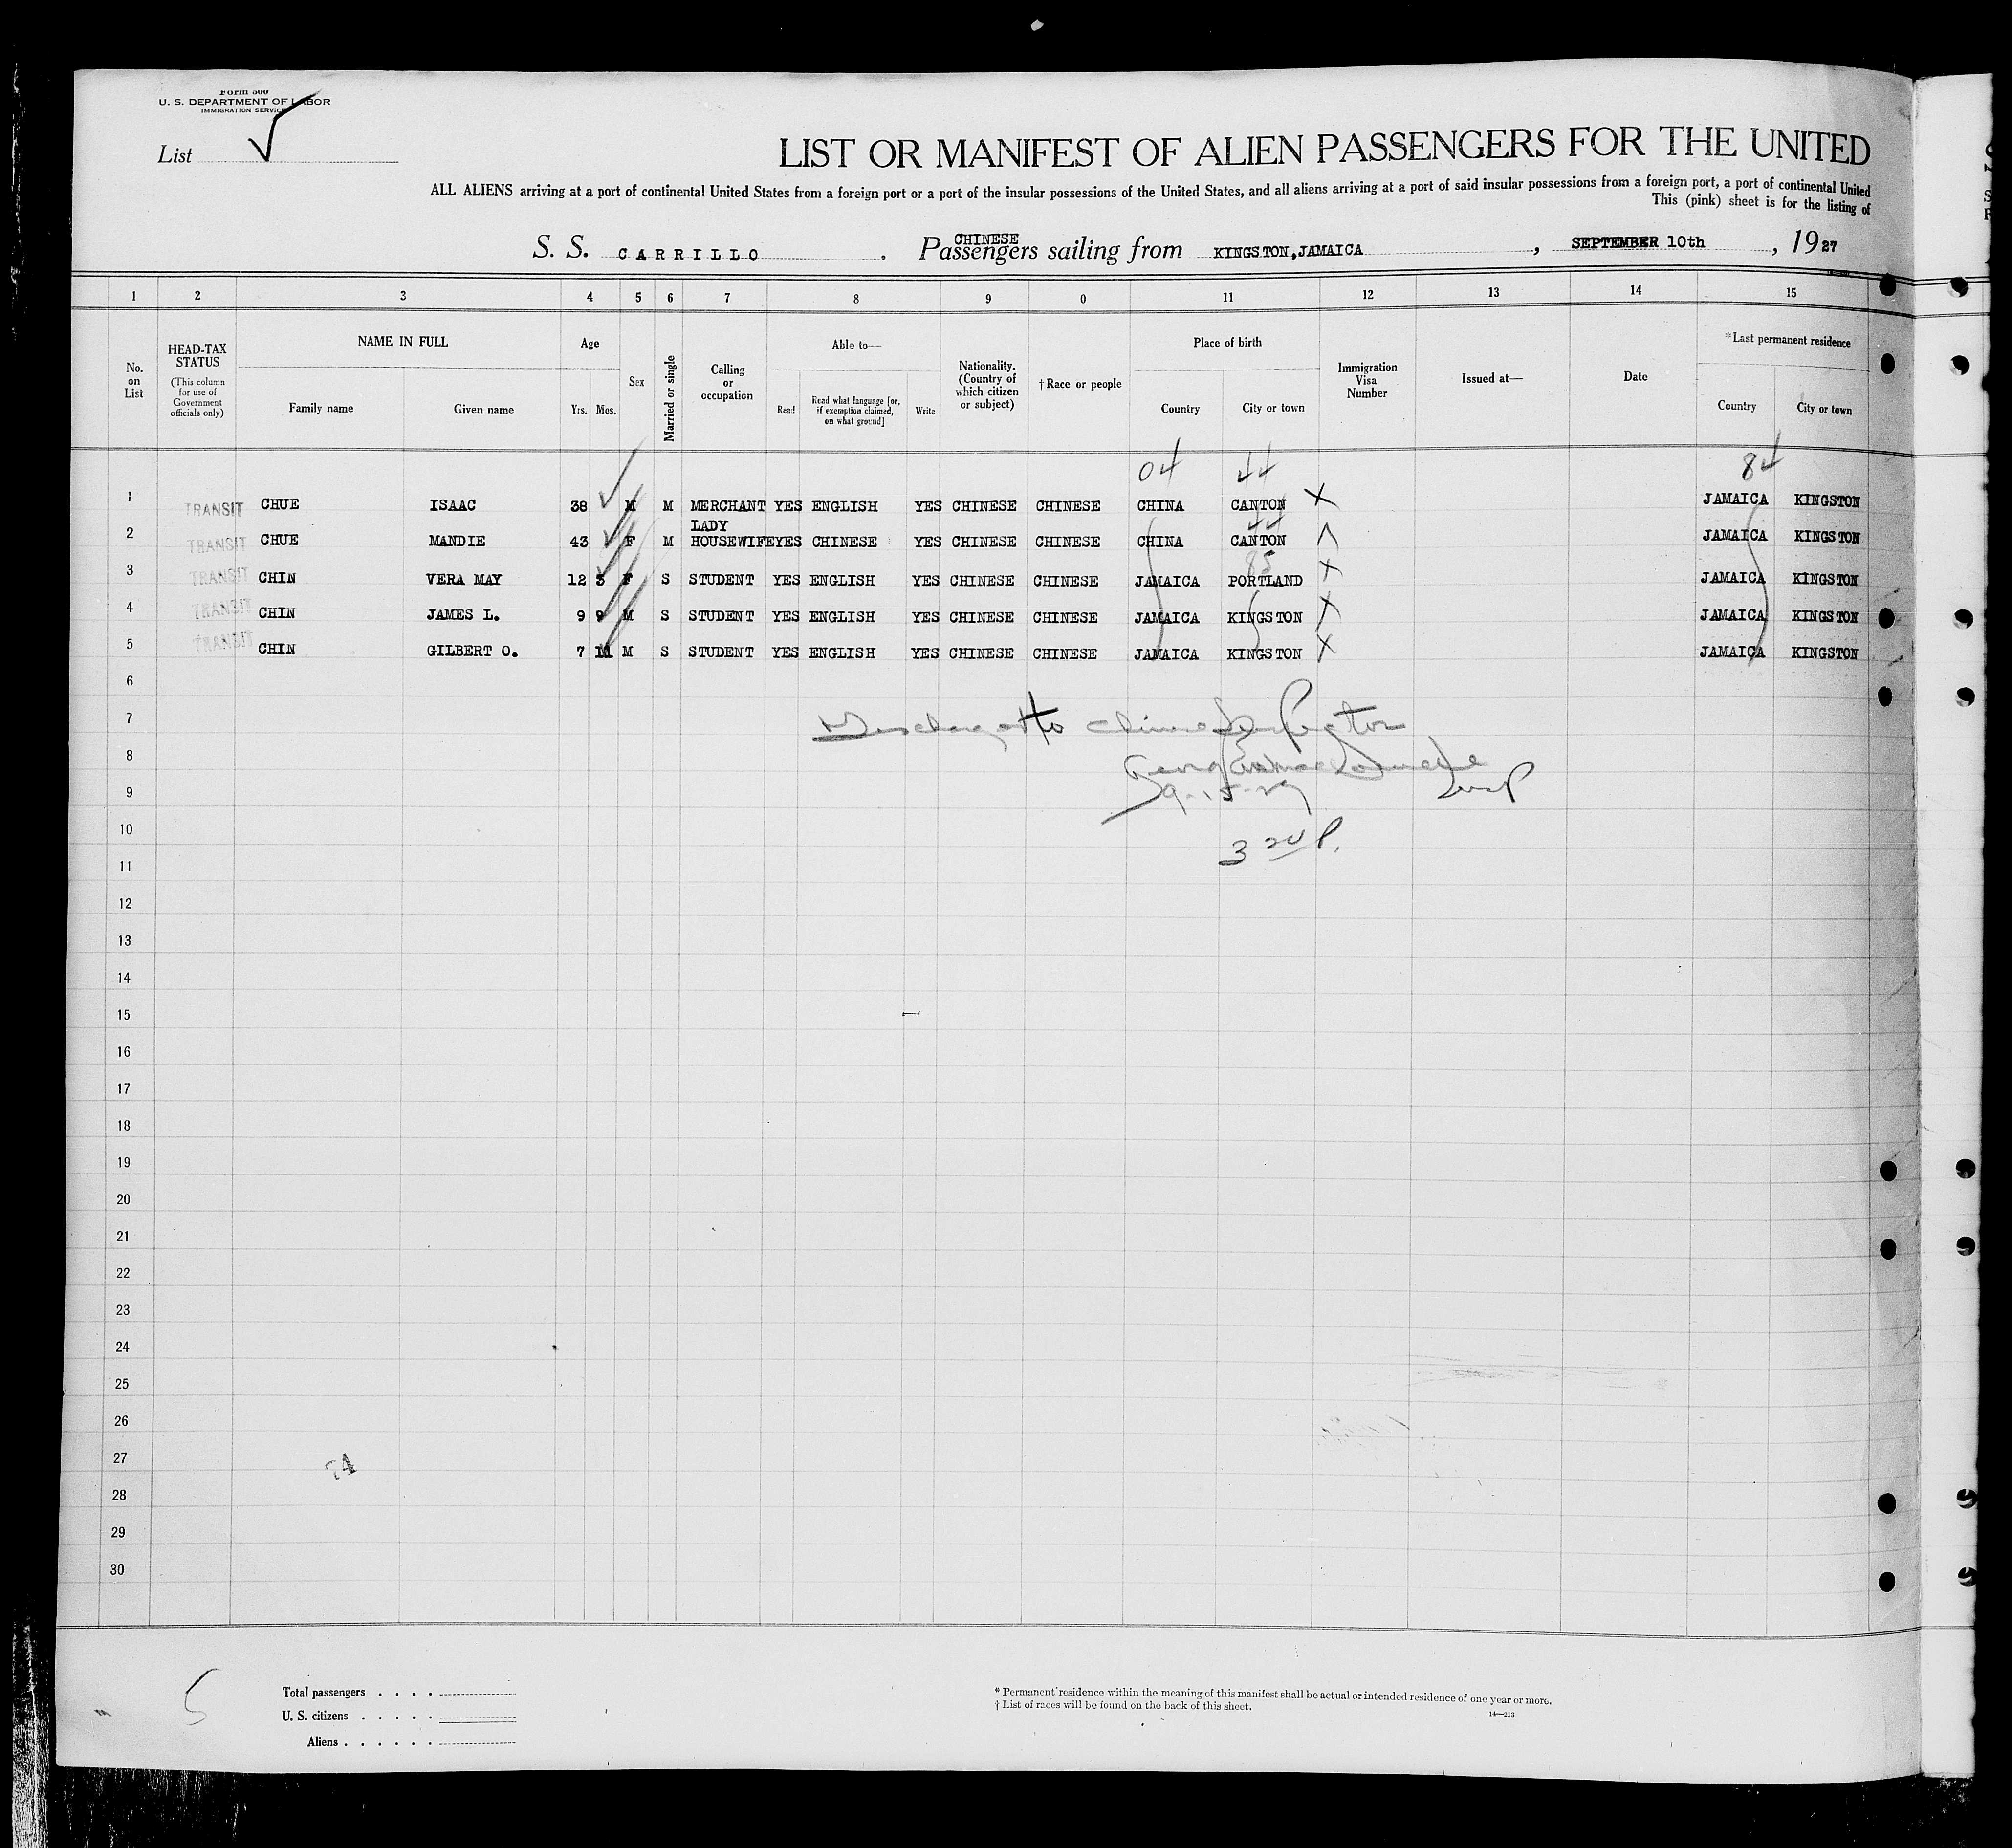 Form 500
U. S. DEPARTMENT OF LABOR
IMMIGRATION SERVICE
List
LIST OR MANIFEST OF ALIEN PASSENGERS FOR THE UNITED
ALL ALIENS arriving at a port of continental United States from a foreign port or a port of the insular possessions of the United States, and all aliens arriving at a port of said insular possessions from a foreign port, a port of continental United
This (pink) sheet is for the listing of
CHINESE
S. S. CARRILLO . Passengers sailing from KINGSTON,JAMAICA , SEPTEMBER 10th , 1927
1 2 3 4 5 6 7 8 9 0 11 12 13 14 15
No. on List
HEAD-TAX STATUS
(This column for use of Government officials only)
NAME IN FULL
Family name Given name
Age
Yrs. Mos.
Sex
Married or single
Calling or occupation
Able to—
Read
Read what language [or, if exemption claimed, on what ground]
Write
Nationality. (Country of which citizen or subject)
† Race or people
Place of birth
Country City or town
Immigration Visa Number
Issued at—
Date
*Last permanent residence
Country City or town
04 44 84
1 TRANSIT CHUE ISAAC 38 M M MERCHANT YES ENGLISH YES CHINESE CHINESE CHINA CANTON X JAMAICA KINGSTON
LADY 44
2 TRANSIT CHUE MANDIE 43 F M HOUSEWIFE YES CHINESE YES CHINESE CHINESE CHINA CANTON JAMAICA KINGSTON
85
3 TRANSIT CHIN VERA MAY 12 5 F S STUDENT YES ENGLISH YES CHINESE CHINESE JAMAICA PORTLAND X JAMAICA KINGSTON
4 TRANSIT CHIN JAMES L. 9 9 M S STUDENT YES ENGLISH YES CHINESE CHINESE JAMAICA KINGSTON X JAMAICA KINGSTON
5 TRANSIT CHIN GILBERT O. 7 11 M S STUDENT YES ENGLISH YES CHINESE CHINESE JAMAICA KINGSTON X JAMAICA KINGSTON
6
7 to Chinese Inspector
8
9
10 3 20 P.
11
12
13
14
15
16
17
18
19
20
21
22
23
24
25
26
27
74
28
29
30
5
Total passengers . . . .
U. S. citizens . . . . .
Aliens . . . . . .
* Permanent residence within the meaning of this manifest shall be actual or intended residence of one year or more.
† List of races will be found on the back of this sheet.
14—213